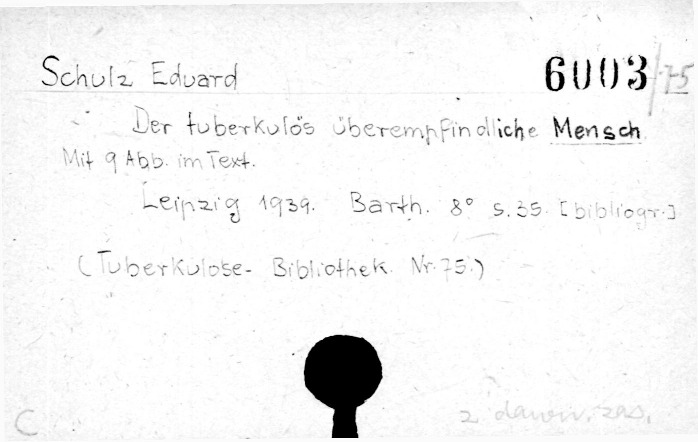 Schulz Eduard 6003/75
Der tuberkulös überempfindliche Mensch
Mit 9 Abb. im Text.
Leipzig 1939. Barth. 8° s.35. [bibliogr.]
(Tuberkulose-Bibliothek. Nr.75.)
C z dawn. zas.